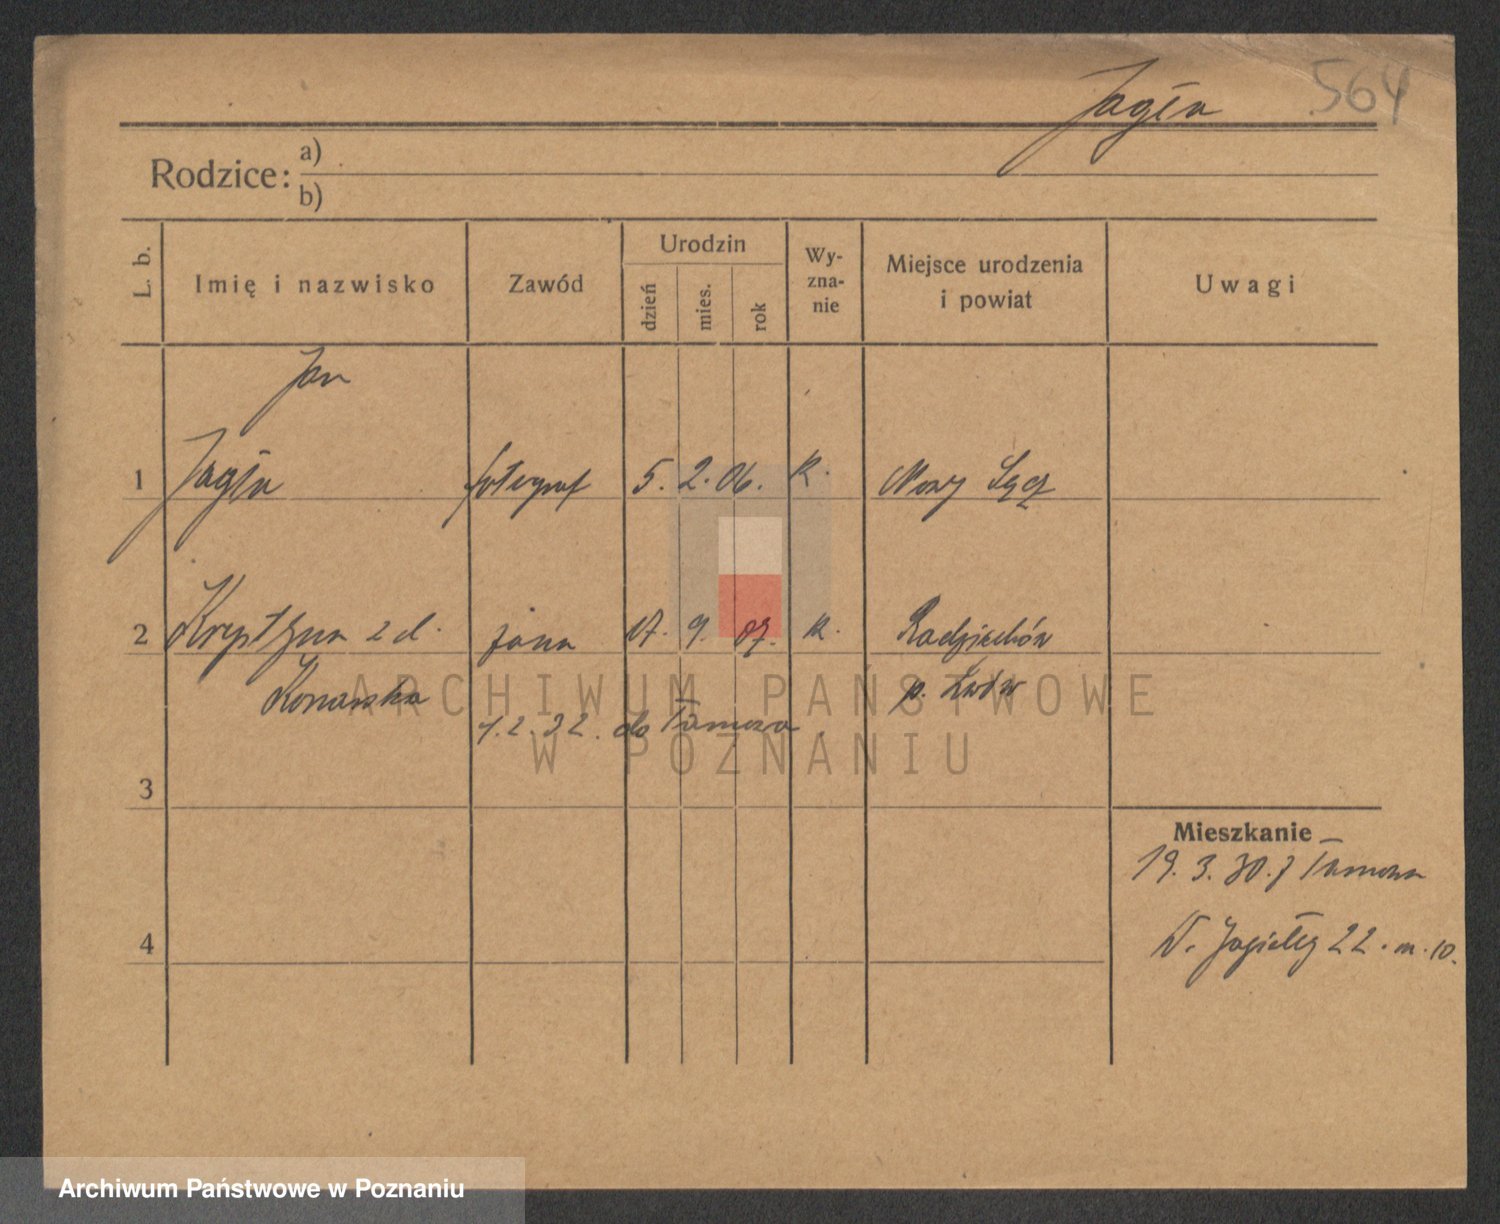 Jagła 564
Rodzice: a)
b)
L. b.
Imię i nazwisko
Zawód
Urodzin
dzień
mies.
rok
Wy-
zna-
nie
Miejsce urodzenia
i powiat
Uwagi
Jan
1 Jagła fotograf 5. 2. 06. R. Nowy Sącz
2 Krystyna z d. żona 17. 9. 07. R. Radziechów
Konarska p. Lwów
1.2.32. do Tarnowa
3
Mieszkanie
19. 3. 30. z Tarnowa
4
W. Jagiełły 22. m. 10.
ARCHIWUM PAŃSTWOWE
W POZNANIU
Archiwum Państwowe w Poznaniu